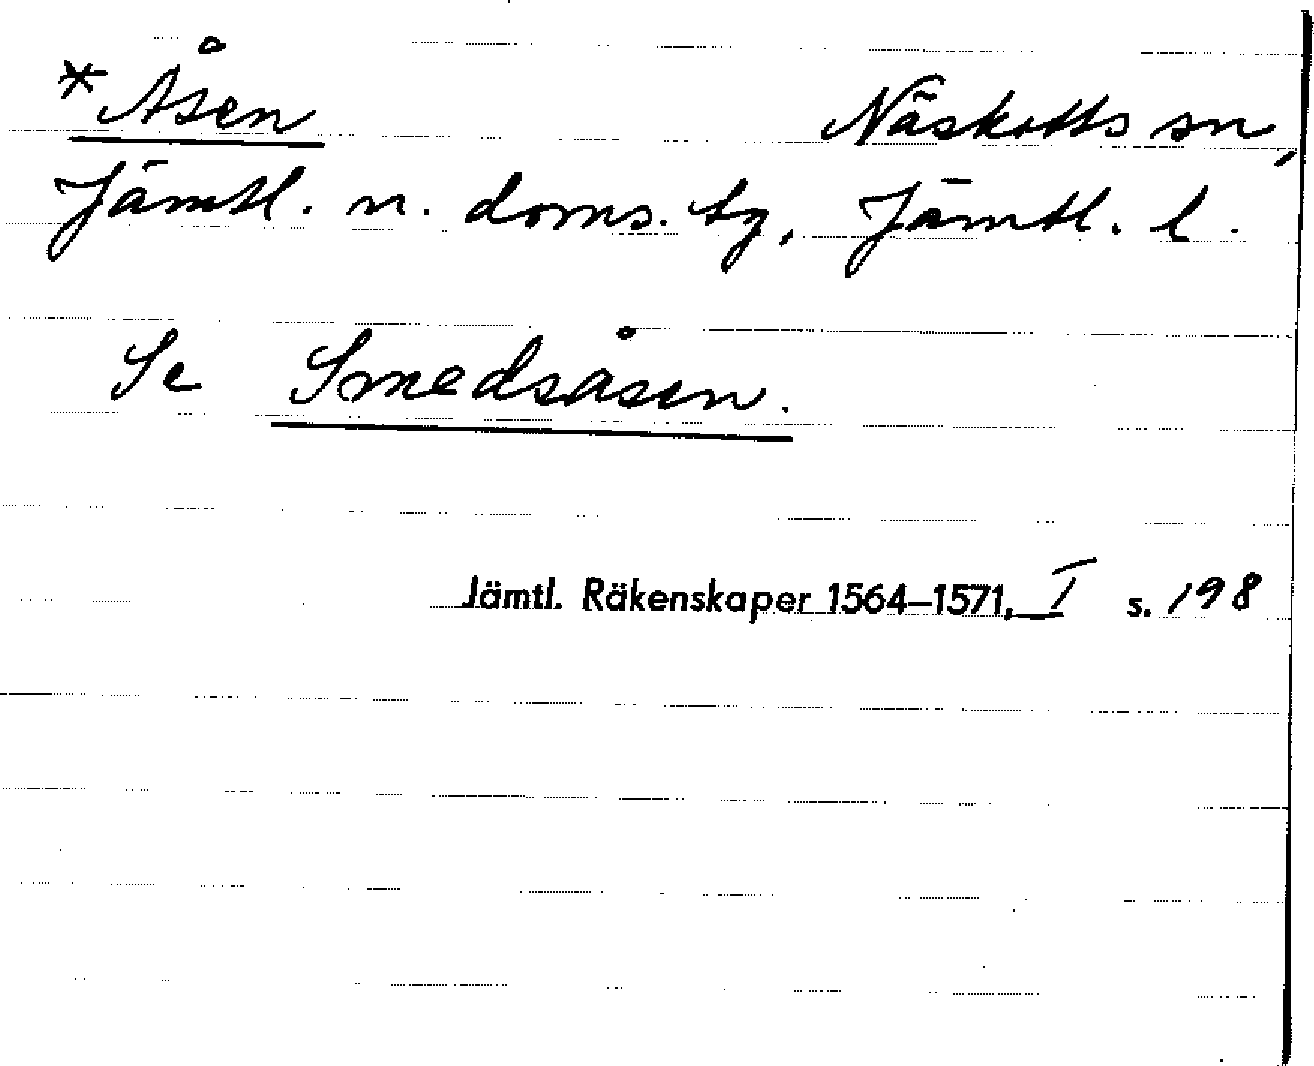 *Åsen Näskotts sn,
Jämtl. n. doms. tg, Jämtl. l.
Se Smedsåsen.
Jämtl. Räkenskaper 1564–1571, I s. 198